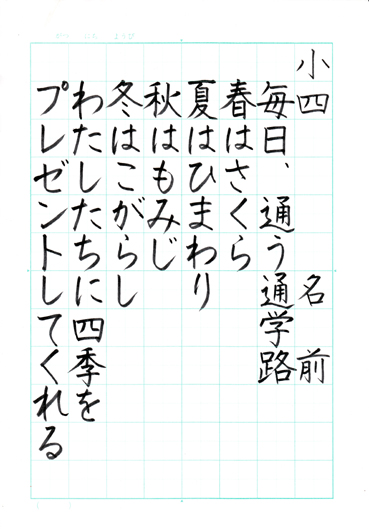 小四 名前
毎日、通う通学路
春はさくら
夏はひまわり
秋はもみじ
冬はこがらし
わたしたちに四季を
プレゼントしてくれる